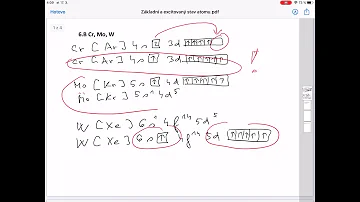 Hotovo
Základní a excitovaný stav atomu.pdf
1 z 4
6.B Cr, Mo, W
Cr [Ar] 4s 3d ↑ ↑ ↑ ↑
Cr [Ar] 4s ↑ 3d ↑ ↑ ↑ ↑ ↑ !
Mo [Kr] 5s ↑ 4d ↑ ↑ ↑ ↑ ↑
Mo [Kr] 5s¹ 4d⁵
W [Xe] 6s¹ 4f¹⁴ 5d⁵
W [Xe] 6s ↑ 4f¹⁴ 5d ↑ ↑ ↑ ↑ ↑